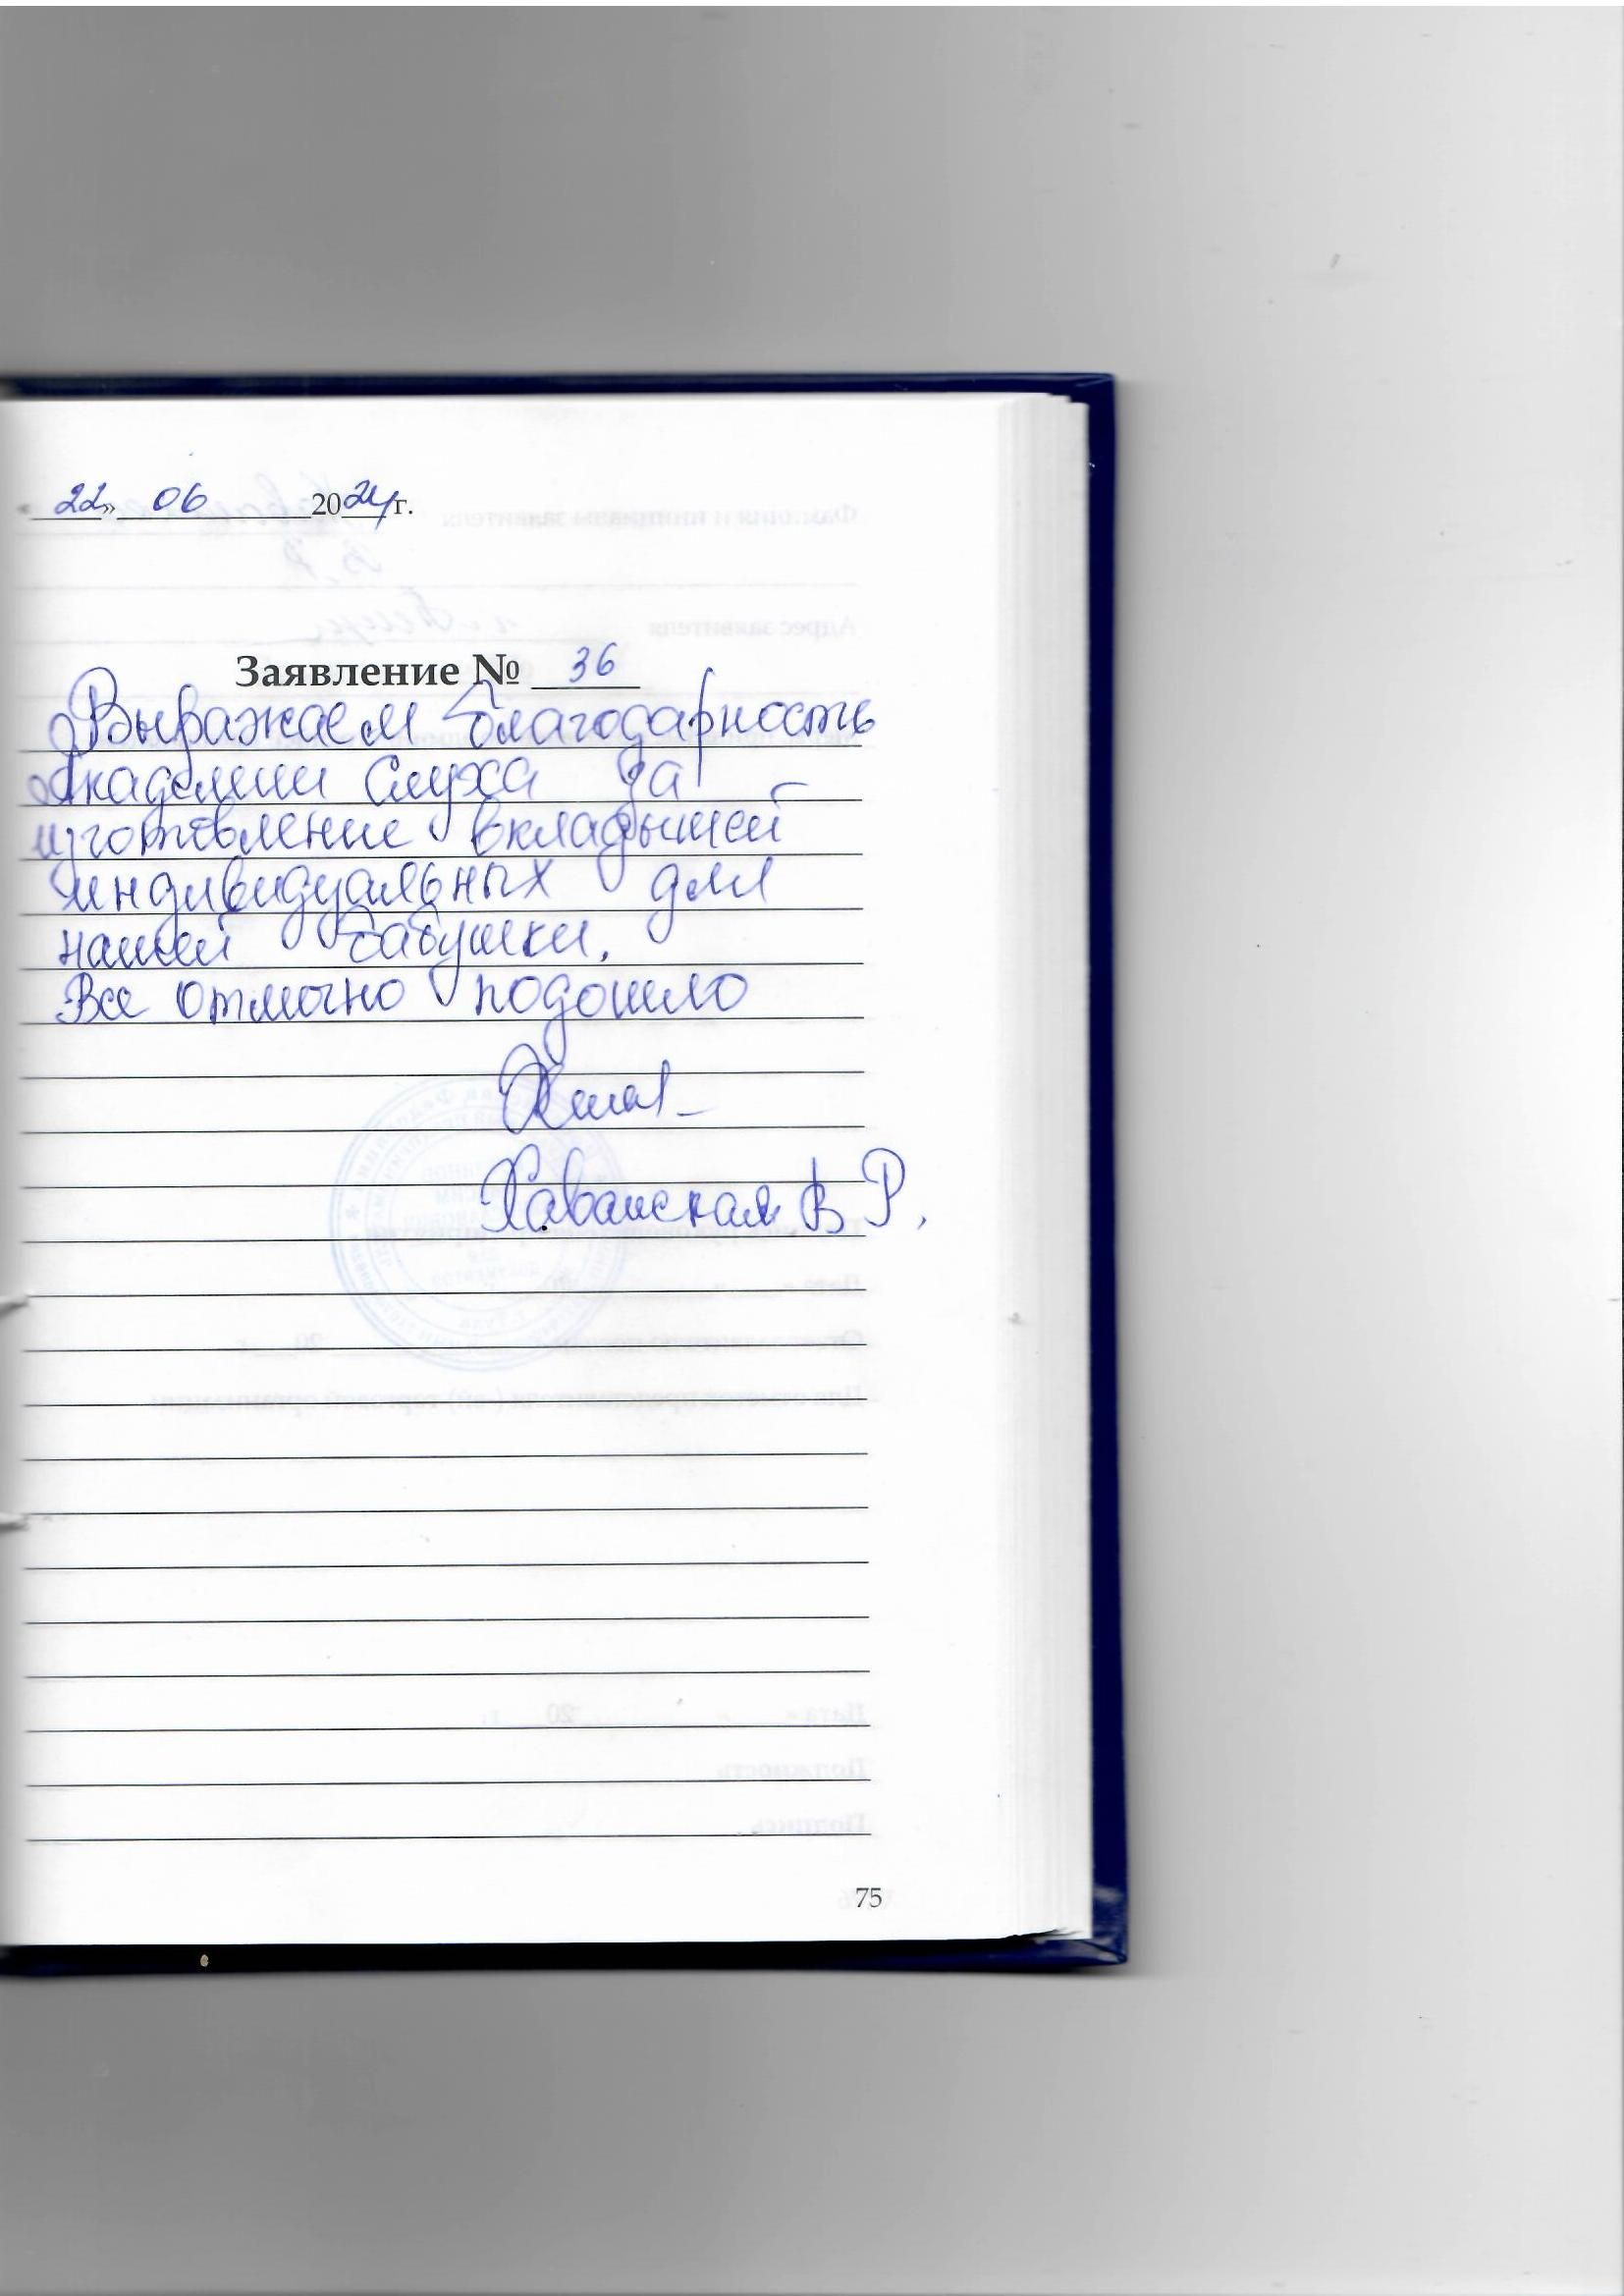 22» 06 2024 г.
Заявление № 36
Выражаем благодарность
Академии Слуха за
изготовление вкладышей
индивидуальных для
нашей бабушки.
Все отлично подошло
Хаванская В Р.
75